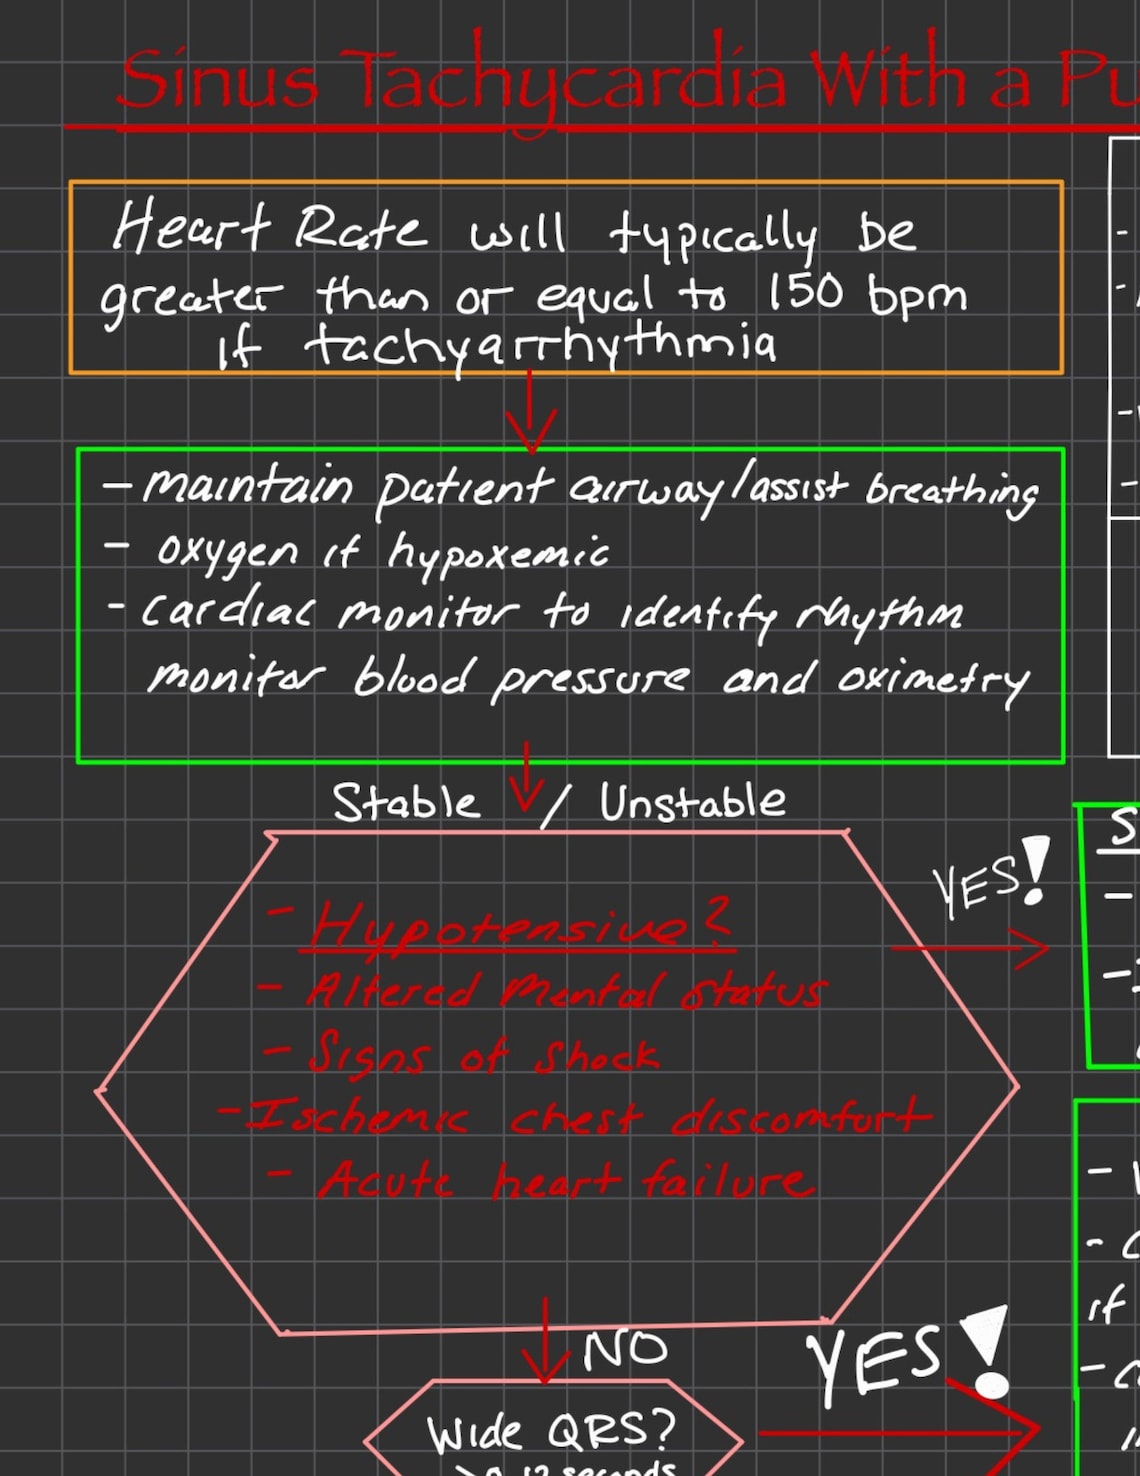 Sinus Tachycardia With a
Heart Rate will typically be
greater than or equal to 150 bpm
if tachyarrhythmia
- maintain patient airway/assist breathing
- oxygen if hypoxemic
- cardiac monitor to identify rhythm
monitor blood pressure and oximetry
Stable / Unstable
YES!
- Hypotensive?
- Altered Mental Status
- Signs of Shock
- Ischemic chest discomfort
- Acute heart failure
NO
YES!
if
Wide QRS?